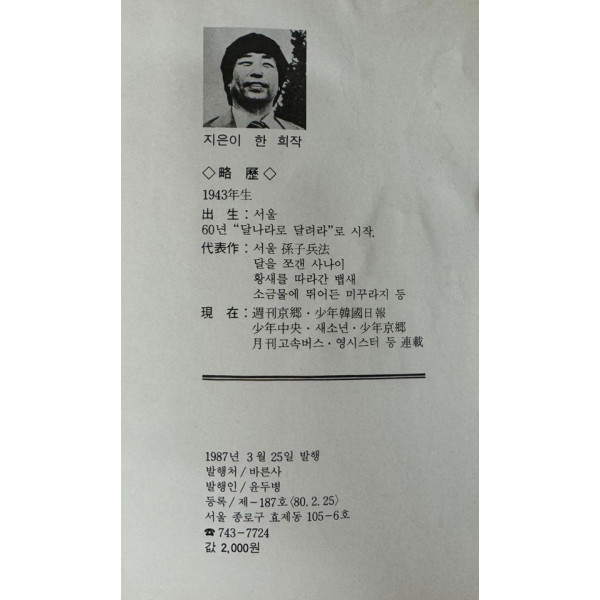 지은이 한 희작
◇略 歷◇
1943年生
出 生 : 서울
60년 “달나라로 달려라”로 시작.
代表作 : 서울 孫子兵法
달을 쪼갠 사나이
황새를 따라간 뱁새
소금물에 뛰어든 미꾸라지 등
現 在 : 週刊京鄕・少年韓國日報
少年中央・새소년・少年京鄕
月刊고속버스・영시스터 등 連載
1987년 3월 25일 발행
발행처/바른사
발행인/윤두병
등록/제-187호〈80.2.25〉
서울 종로구 효제동 105-6호
☎743-7724
값 2,000원